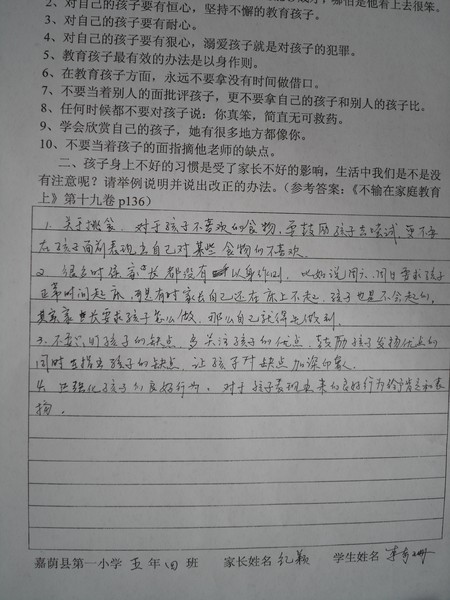 2、对自己的孩子要有恒心，坚持不懈的教育孩子。
3、对自己的孩子要有耐心。
4、对自己的孩子要有狠心，溺爱孩子就是对孩子的犯罪。
5、教育孩子最有效的办法是以身作则。
6、在教育孩子方面，永远不要拿没有时间做借口。
7、不要当着别人的面批评孩子，更不要拿自己的孩子和别人的孩子比。
8、任何时候都不要对孩子说：你真笨，简直无可救药。
9、学会欣赏自己的孩子，她有很多地方都像你。
10、不要当着孩子的面指摘他老师的缺点。
二、孩子身上不好的习惯是受了家长不好的影响，生活中我们是不是没
有注意呢？请举例说明并说出改正的办法。（参考答案：《不输在家庭教育
上》第十九卷 p136）
1、关于挑食，对于孩子不喜欢的食物，要鼓励孩子去尝试，更不要
在孩子面前表现出自己对某些食物的不喜欢。
2、很多时候家长都没有以身作则，比如说周六、周日要求孩子
正常时间起床，可是有时家长自己还在床上不起，孩子也是不会起的，
其实家长要求孩子怎么做，那么自己就得先做到。
3、不要
孩子的缺点，多关注孩子的优点，鼓励孩子发扬优点的
同时
指出孩子的缺点，让孩子对缺点加深印象。
4、
强化孩子们良好行为，对于孩子表现出来的良好行为给
和表
扬。
嘉荫县第一小学 五 年 四 班 家长姓名 纪颖 学生姓名